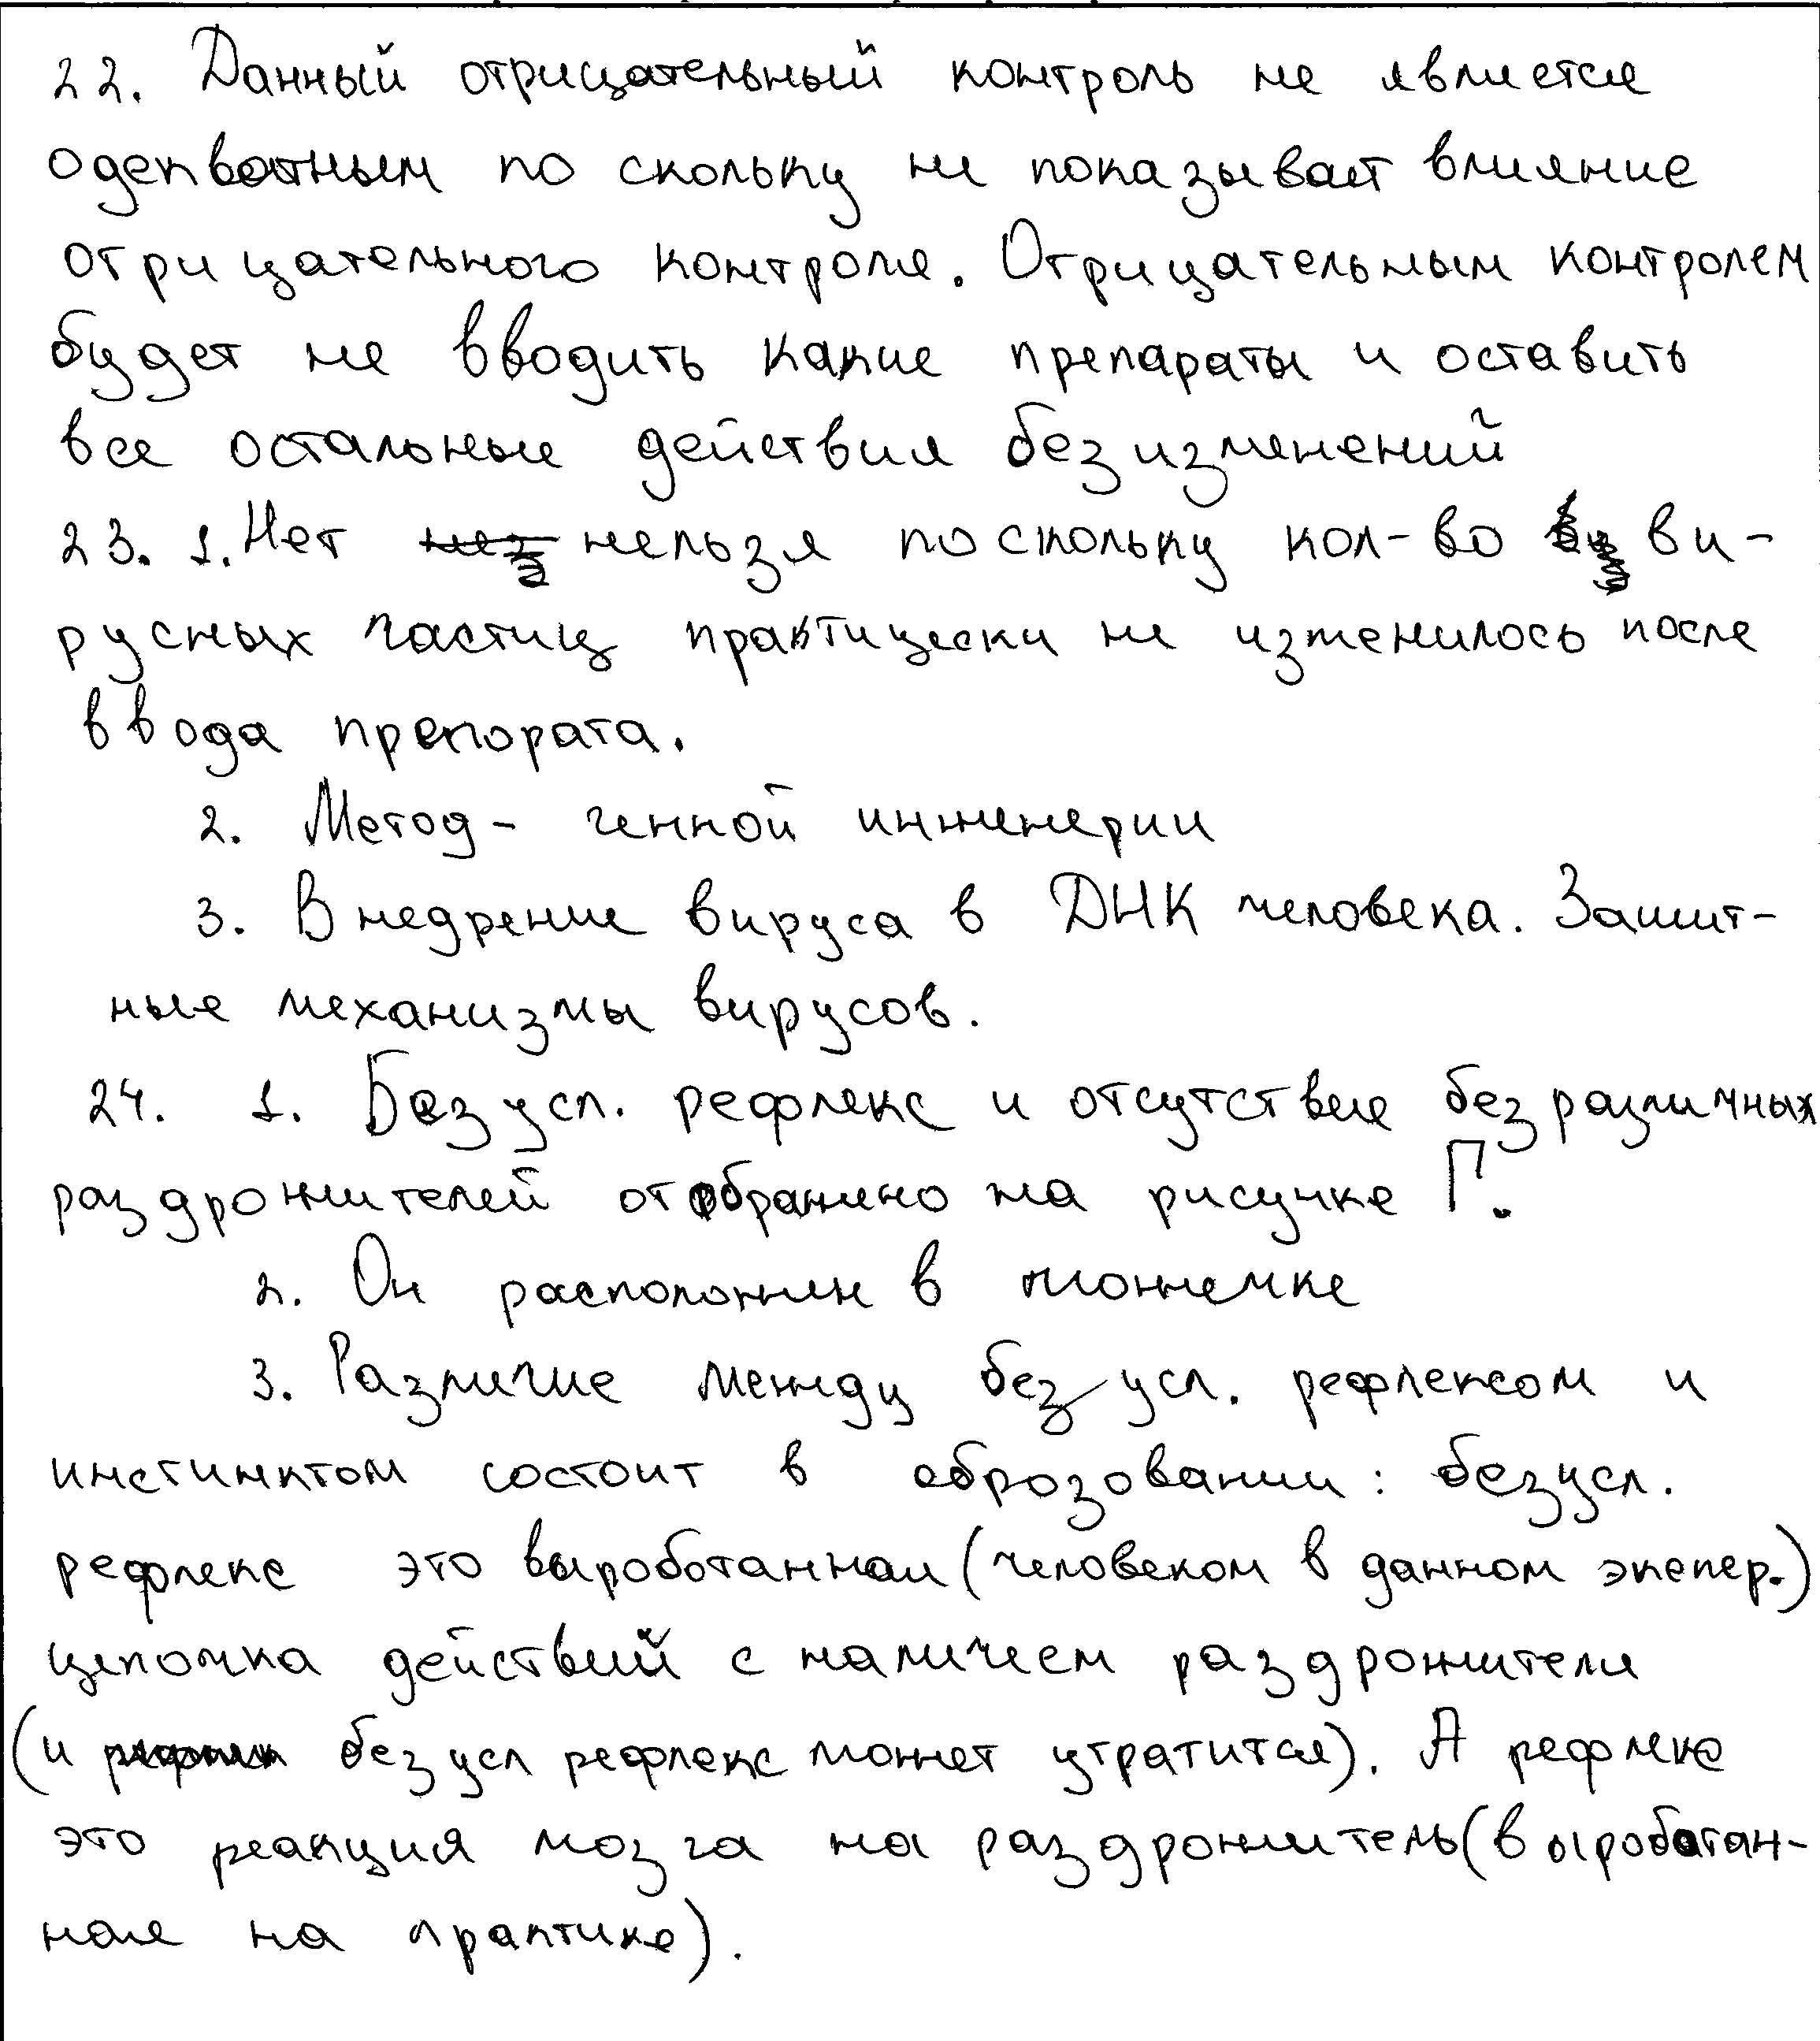 22. Данный отрицательный контроль не является
одекватным по скольку не показывает влияние
отрицательного контроля. Отрицательным контролем
будет не вводить какие препараты и оставить
все остальные действия без изменений
23. 1. Нет нельзя поскольку кол-во ви-
русных частиц практицески не изменилось после
ввода препората.
2. Метод - генной инженерии
3. Внедрение вируса в ДНК человека. Зашит-
ные механизмы вирусов.
24. 1. Безусл. рефлекс и отсутствие безразличных
раздрожителей отображено на рисунке Г.
2. Он расположен в можечке
3. Различие между безусл. рефлексом и
инстинктом состоит в оброзовании: безусл.
рефлекс это выроботанная (человеком в данном экспер.)
цепочка действий с наличем раздрожителя
(и безусл рефлекс может утратится). А рефлекс
это реакция мозга на раздрожитель (выроботан-
ная на практике).